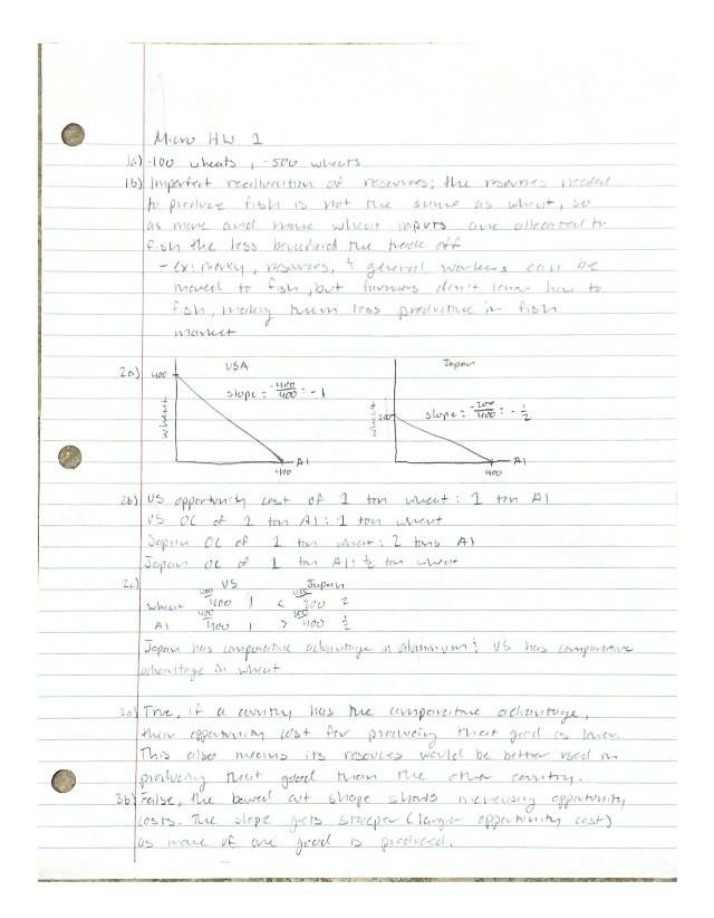 Micro HW 1
1a) -100 wheats, -500 wheats
1b) Imperfect reallocation of resources; the resources needed
to produce fish is not the same as wheat, so
as more and more wheat inputs are allocated to
fish the less beneficial the trade off
- ex: money, resources, & general workers can be
moved to fish, but farmers don't know how to
fish, making them less productive in fish
market
2a) 400 USA Japan
slope = -400/400 = -1
slope = -200/400 = -1/2
wheat wheat 200
400 Al 400 Al
2b) US opportunity cost of 1 ton wheat: 1 ton Al
US OC of 1 ton Al: 1 ton wheat
Japan OC of 1 ton wheat: 2 tons Al
Japan OC of 1 ton Al: 1/2 ton wheat
2c) US Japan
wheat 400/400 1 < 400/200 2
Al 400/400 1 > 200/400 1/2
Japan has comparative advantage in aluminum; US has comparative
advantage in wheat
3a) True, if a country has the comparative advantage,
their opportunity cost for producing that good is lower.
This also means its resources would be better used in
producing that good than the other country.
3b) False, the bowed out shape shows increasing opportunity
costs. The slope gets steeper (larger opportunity cost)
as more of one good is produced.